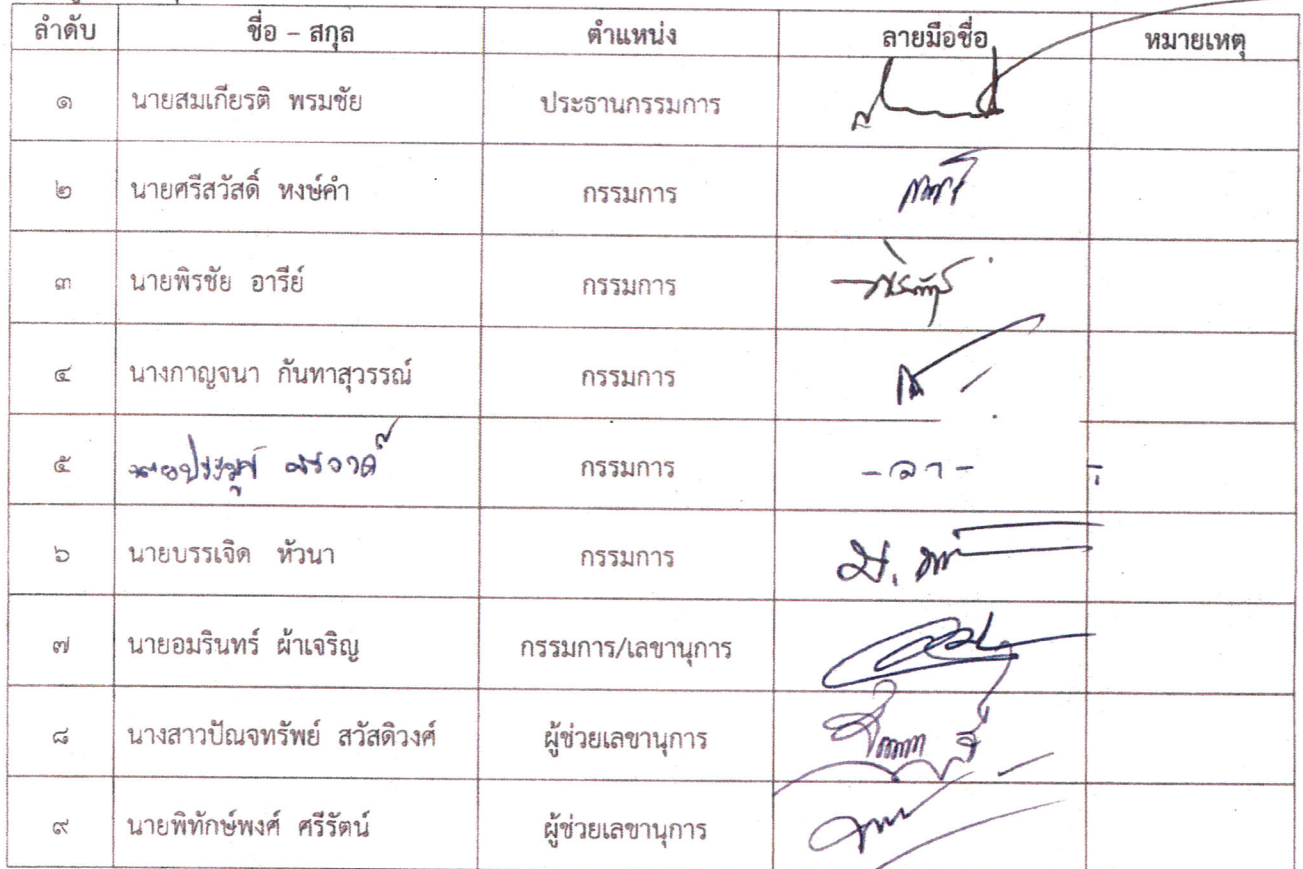 ลำดับ ชื่อ – สกุล ตำแหน่ง ลายมือชื่อ หมายเหตุ
๑ นายสมเกียรติ พรมชัย ประธานกรรมการ
๒ นายศรีสวัสดิ์ หงษ์คำ กรรมการ
๓ นายพิรชัย อารีย์ กรรมการ
๔ นางกาญจนา กันทาสุวรรณ์ กรรมการ
๕ กรรมการ -ลา-
๖ นายบรรเจิด หัวนา กรรมการ
๗ นายอมรินทร์ ผ้าเจริญ กรรมการ/เลขานุการ
๘ นางสาวปัณจทรัพย์ สวัสดิวงศ์ ผู้ช่วยเลขานุการ
๙ นายพิทักษ์พงศ์ ศรีรัตน์ ผู้ช่วยเลขานุการ